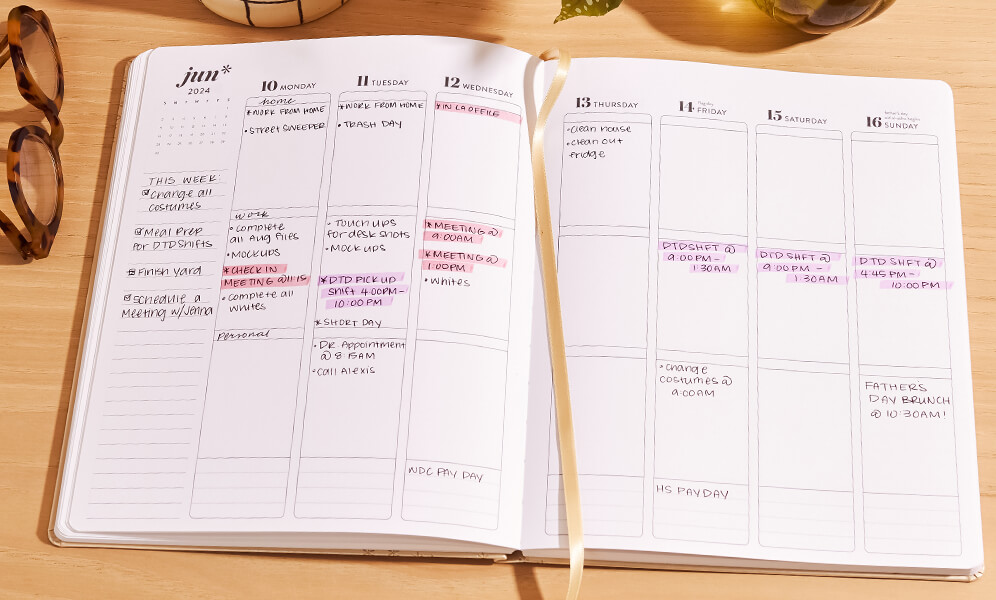 jun*
2024
THIS WEEK:
Change all
costumes
Meal Prep
for DTD Shifts
Finish yard
Schedule a
Meeting w/Jenna
10 MONDAY
home
*WORK FROM HOME
•STREET SWEEPER
work
•Complete
all Aug files
•MOCKUPS
*CHECK IN
MEETING @11:15
•Complete all
whites
personal
11 TUESDAY
*WORK FROM HOME
•TRASH DAY
•Touch ups
for desk shots
•MOCKUPS
*DTD PICK UP
Shift 4:00PM-
10:00PM
*SHORT DAY
•DR. Appointment
@ 8:15AM
•Call Alexis
12 WEDNESDAY
*IN LA OFFICE
*MEETING @
9:00AM
*MEETING @
1:00PM
•Whites
WDC PAY DAY
13 THURSDAY
•Clean house
•Clean out
fridge
14 FRIDAY
DTD SHFT @
9:00PM-
1:30AM
•Change
costumes @
9:00AM
HS PAYDAY
15 SATURDAY
DTD SHFT @
9:00PM-
1:30AM
16 SUNDAY
DTD SHFT @
4:45PM-
10:00PM
FATHERS
DAY BRUNCH
@ 10:30AM!